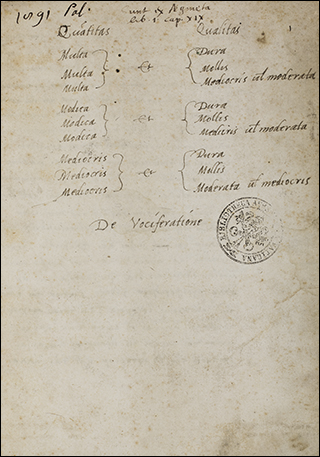 1891 Pal.
lib 1 cap XIX
Quãtitas Qualitas
Multa Dura
Multa et Molles
Multa Mediocris ul moderata
Modica Dura
Modica et Molles
Modica Mediocris ul moderata
Mediocris Dura
Mediocris et Molles
Mediocris Moderata ul mediocris
De Vociferatione
BIBLIOTHECA VATICANA